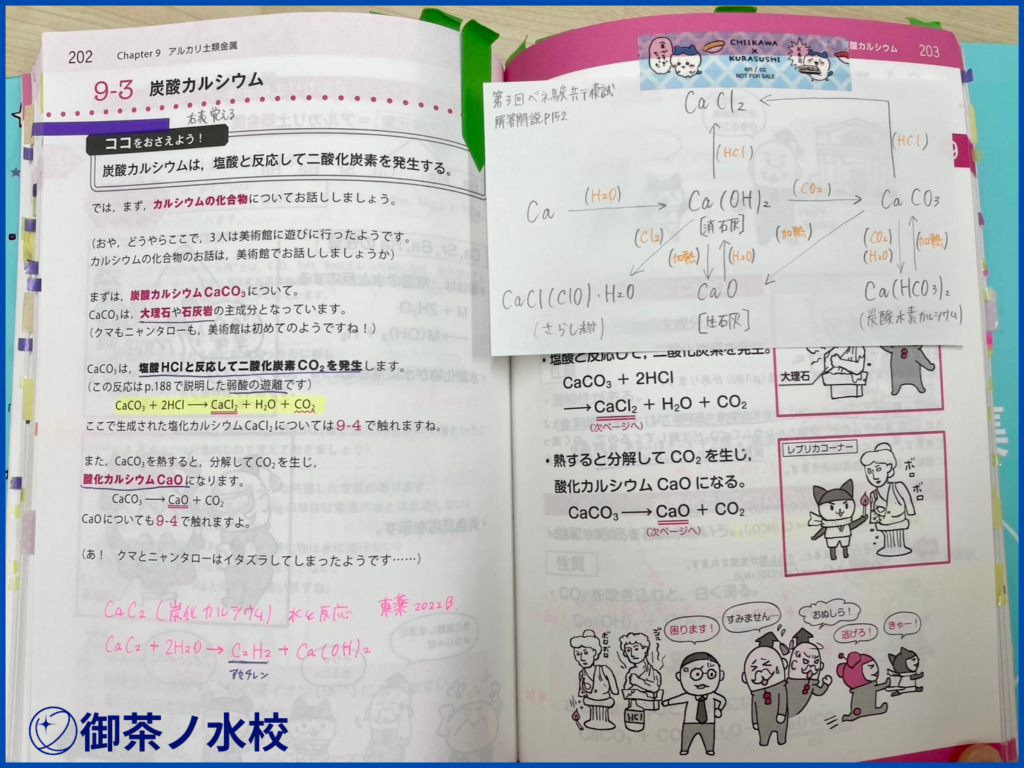 202 Chapter 9 アルカリ土類金属
9-3 炭酸カルシウム
右表覚える
ココをおさえよう！
炭酸カルシウムは，塩酸と反応して二酸化炭素を発生する。
では，まず，カルシウムの化合物についてお話ししましょう。
(おや，どうやらここで，3人は美術館に遊びに行ったようです。
カルシウムの化合物のお話は，美術館でお話ししましょうか)
まずは，炭酸カルシウムCaCO₃について。
CaCO₃は，大理石や石灰岩の主成分となっています。
(クマもニャンタローも，美術館は初めてのようですね！)
CaCO₃は，塩酸HClと反応して二酸化炭素CO₂を発生します。
(この反応はp.188で説明した弱酸の遊離です)
CaCO₃ + 2HCl ⟶ CaCl₂ + H₂O + CO₂
ここで生成された塩化カルシウムCaCl₂については9-4で触れますね。
また，CaCO₃を熱すると，分解してCO₂を生じ，
酸化カルシウムCaOになります。
CaCO₃ ⟶ CaO + CO₂
CaOについても9-4で触れますよ。
(あ！ クマとニャンタローはイタズラしてしまったようです……)
CaC₂ (炭化カルシウム) 水と反応 東薬 2022B.
CaC₂ + 2H₂O → C₂H₂ + Ca(OH)₂
アセチレン
炭酸カルシウム 203
CHIIKAWA
×
KURASUSHI
en / cc
NOT FOR SALE
第3回ベネ駿共テ模試
解答解説p152
CaCl₂
(HCl)
(HCl)
Ca (H₂O) Ca(OH)₂ (CO₂) CaCO₃
[消石灰]
(Cl₂) (加熱) (H₂O) (加熱) (CO₂) (H₂O) (加熱)
CaCl(ClO)・H₂O CaO Ca(HCO₃)₂
(さらし粉) [生石灰] (炭酸水素カルシウム)
・塩酸と反応して，二酸化炭素を発生。
CaCO₃ + 2HCl
⟶ CaCl₂ + H₂O + CO₂
(次ページへ)
大理石
・熱すると分解して CO₂ を生じ，
酸化カルシウム CaO になる。
CaCO₃ ⟶ CaO + CO₂
(次ページへ)
レプリカコーナー
ボロ
ボロ
ボロボロ
HCl
困ります！
すみません…
おぬしら！
逃げろ！
きゃー！
御茶ノ水校